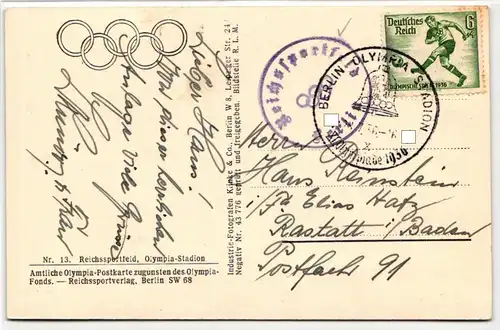 Lieber Hans!
Von dieser herrlichen
Anlage viele Grüsse
Nr. 13. Reichssportfeld, Olympia-Stadion
Amtliche Olympia-Postkarte zugunsten des Olympia-
Fonds. — Reichssportverlag, Berlin SW 68
Industrie-Fotografen Klinke & Co., Berlin W 8, Leipziger Str. 24
Negativ Nr. 43 776 geprüft und freigegeben. Bildstelle R. L. M.
Reichssportfeld
BERLIN OLYMPIA-STADION
1936
Deutsches Reich 6
OLYMPISCHE SPIELE 1936
Herrn
Hans
i/Fa Elias Hatz
Rastatt i/Baden
Postfach 91